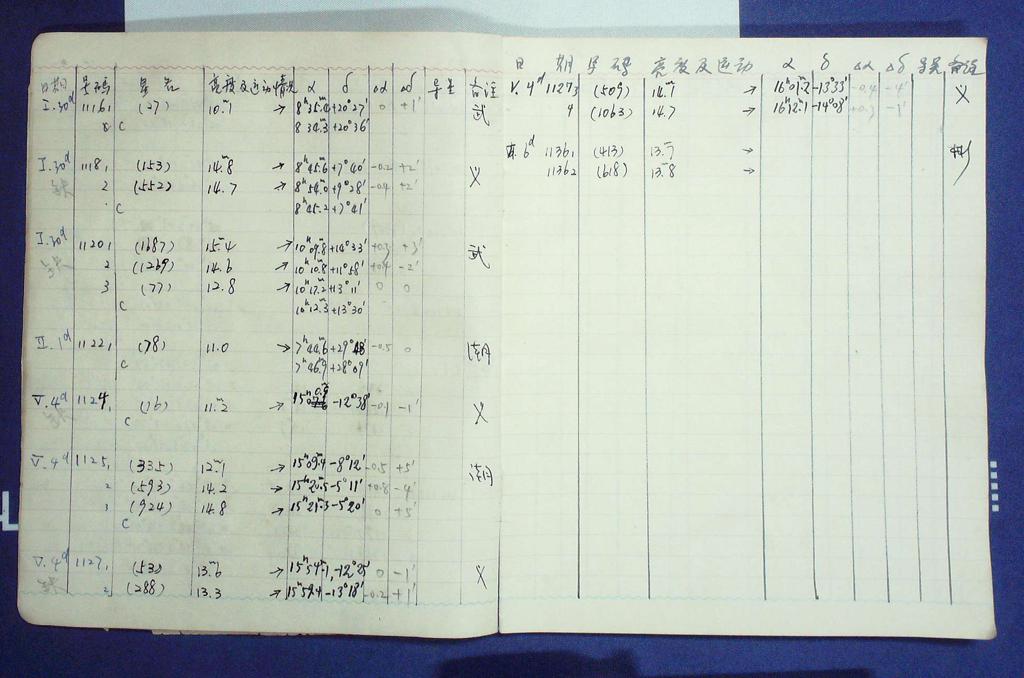 日期 号码 星名 亮度及运动情况 α δ Δα Δδ 导星 备注
I.30d 1116₁ (27) 10.m1 8h35.m4 +20°27′ 0 +1′ 武
C 8 34.3 +20°36′
I.30d 1118₁ (153) 14.m8 → 8h45.m6 +7°40′ -0.2 +2′ 义
2 (552) 14.7 → 8h54.m0 +9°28′ -0.4 +2′
C 8h45.2 +7°41′
I.30d 1120₁ (1687) 15.m4 → 10h09.m8 +14°33′ +0.3 +3′ 武
2 (1269) 14.6 → 10h10.m8 +11°58′ +0.4 -2′
3 (77) 12.8 → 10h17.m2 +13°11′ 0 0
C 10h12.m3 +13°30′
II.1d 1122₁ (78) 11.0 → 7h44.m6 +29°48′ -0.5 0
C 7h46.m9 +28°09′
V.4d 1124₁ (16) 11.m2 → -12°38′ -0.1 -1′ 义
C
V.4d 1125₁ (335) 12.m1 → 15h09.m4 -8°12′ -0.5 +5′
2 (593) 14.2 → 15h20.m5 -5°11′ +0.8 -4′
3 (924) 14.8 → 15h21.m3 -5°20′ 0 +5′
C
V.4d 1127₁ (53) 13.m6 → 15h54.m1 -12°25′ 0 -1′ 义
2 (288) 13.3 → 15h59.4 -13°18′ -0.2 +1′
日期 号码 亮度及运动 α δ Δα Δδ 导星 备注
V.4d 1127₃ (509) 14.m1 → 16h01.m2 -13°33′ -0.4 -4′ 义
4 (1063) 14.7 → 16h12.m1 -14°08′ +0.3 -1′
6d 1136₁ (413) 13.m7 → 彬
1136₂ (618) 13.8 →